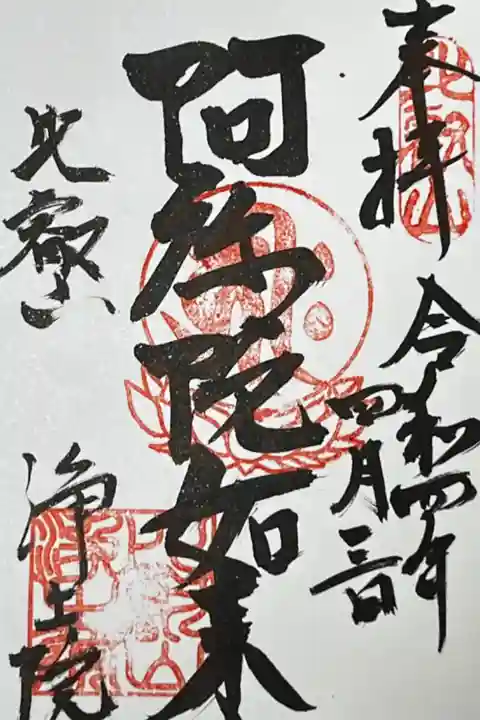 奉拝
令和四年
四月三日
阿弥陀如来
比叡山
浄土院